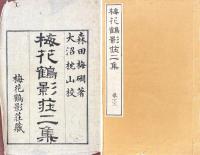 森田梅礀著
大沼枕山校
梅花鶴影荘二集
梅花鶴影荘蔵
梅花鶴影荘二集